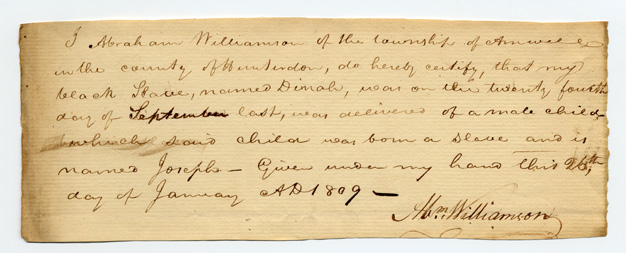 I Abraham Williamson of the township of Amwell
in the county of Hunterdon, do hereby certify, that my
black Slave, named Dinah, was on the twenty fourth
day of September last, was delivered of a male child
which said child was born a Slave and is
named Joseph — Given under my hand this 26th
day of January AD 1809 —
Abm. Williamson